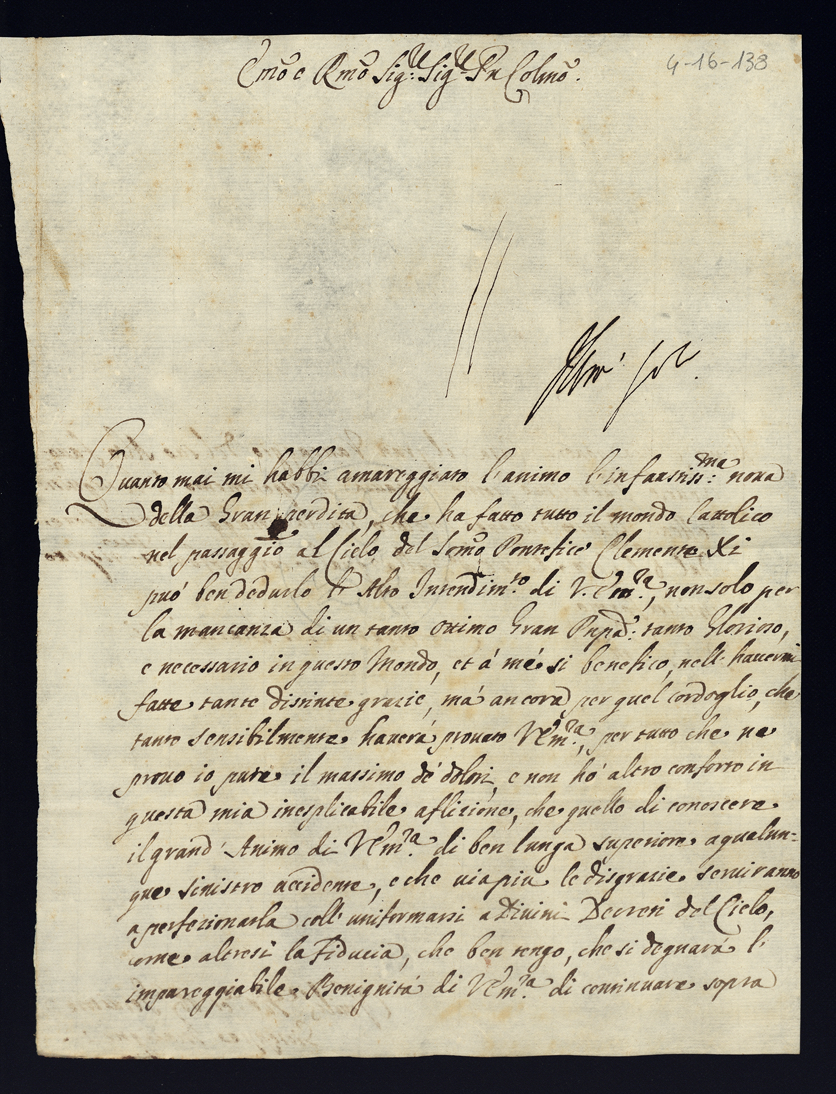 Emo e Rmo Sigr: Sigr Pn Colmo.
4-16-138
Quanto mai mi habbi amareggiato l'animo l'infaustissma: nova
della Gran perdita, che ha fatto tutto il mondo Cattolico
nel passaggio al Cielo del Somo Pontefice Clemente XI
può ben dedurlo l' Alto Intendimto di V. Emza, non solo per
la mancanza di un tanto ottimo Gran tanto Glorioso,
e necessario in questo Mondo, et à mè si benefico, nell' havermi
fatte tante distinte grazie, mà ancora per quel cordoglio, che
tanto sensibilmente haverà provato VEmza, per tutto che ne
provo io pure il massimo dè dolori, e non hò altro conforto in
questa mia inesplicabile aflizione, che quello di conoscere
il grand' Animo di VEmza. di ben lunga superiore a qualun-
que sinistro accidente, e che via piu le disgrazie serviranno
a perfezionarla coll' uniformarsi a Divini Decreti del Cielo,
come altresi la Fiducia, che ben tengo, che si degnarà l'
impareggiabile Benignità di VEmza. di continuare sopra